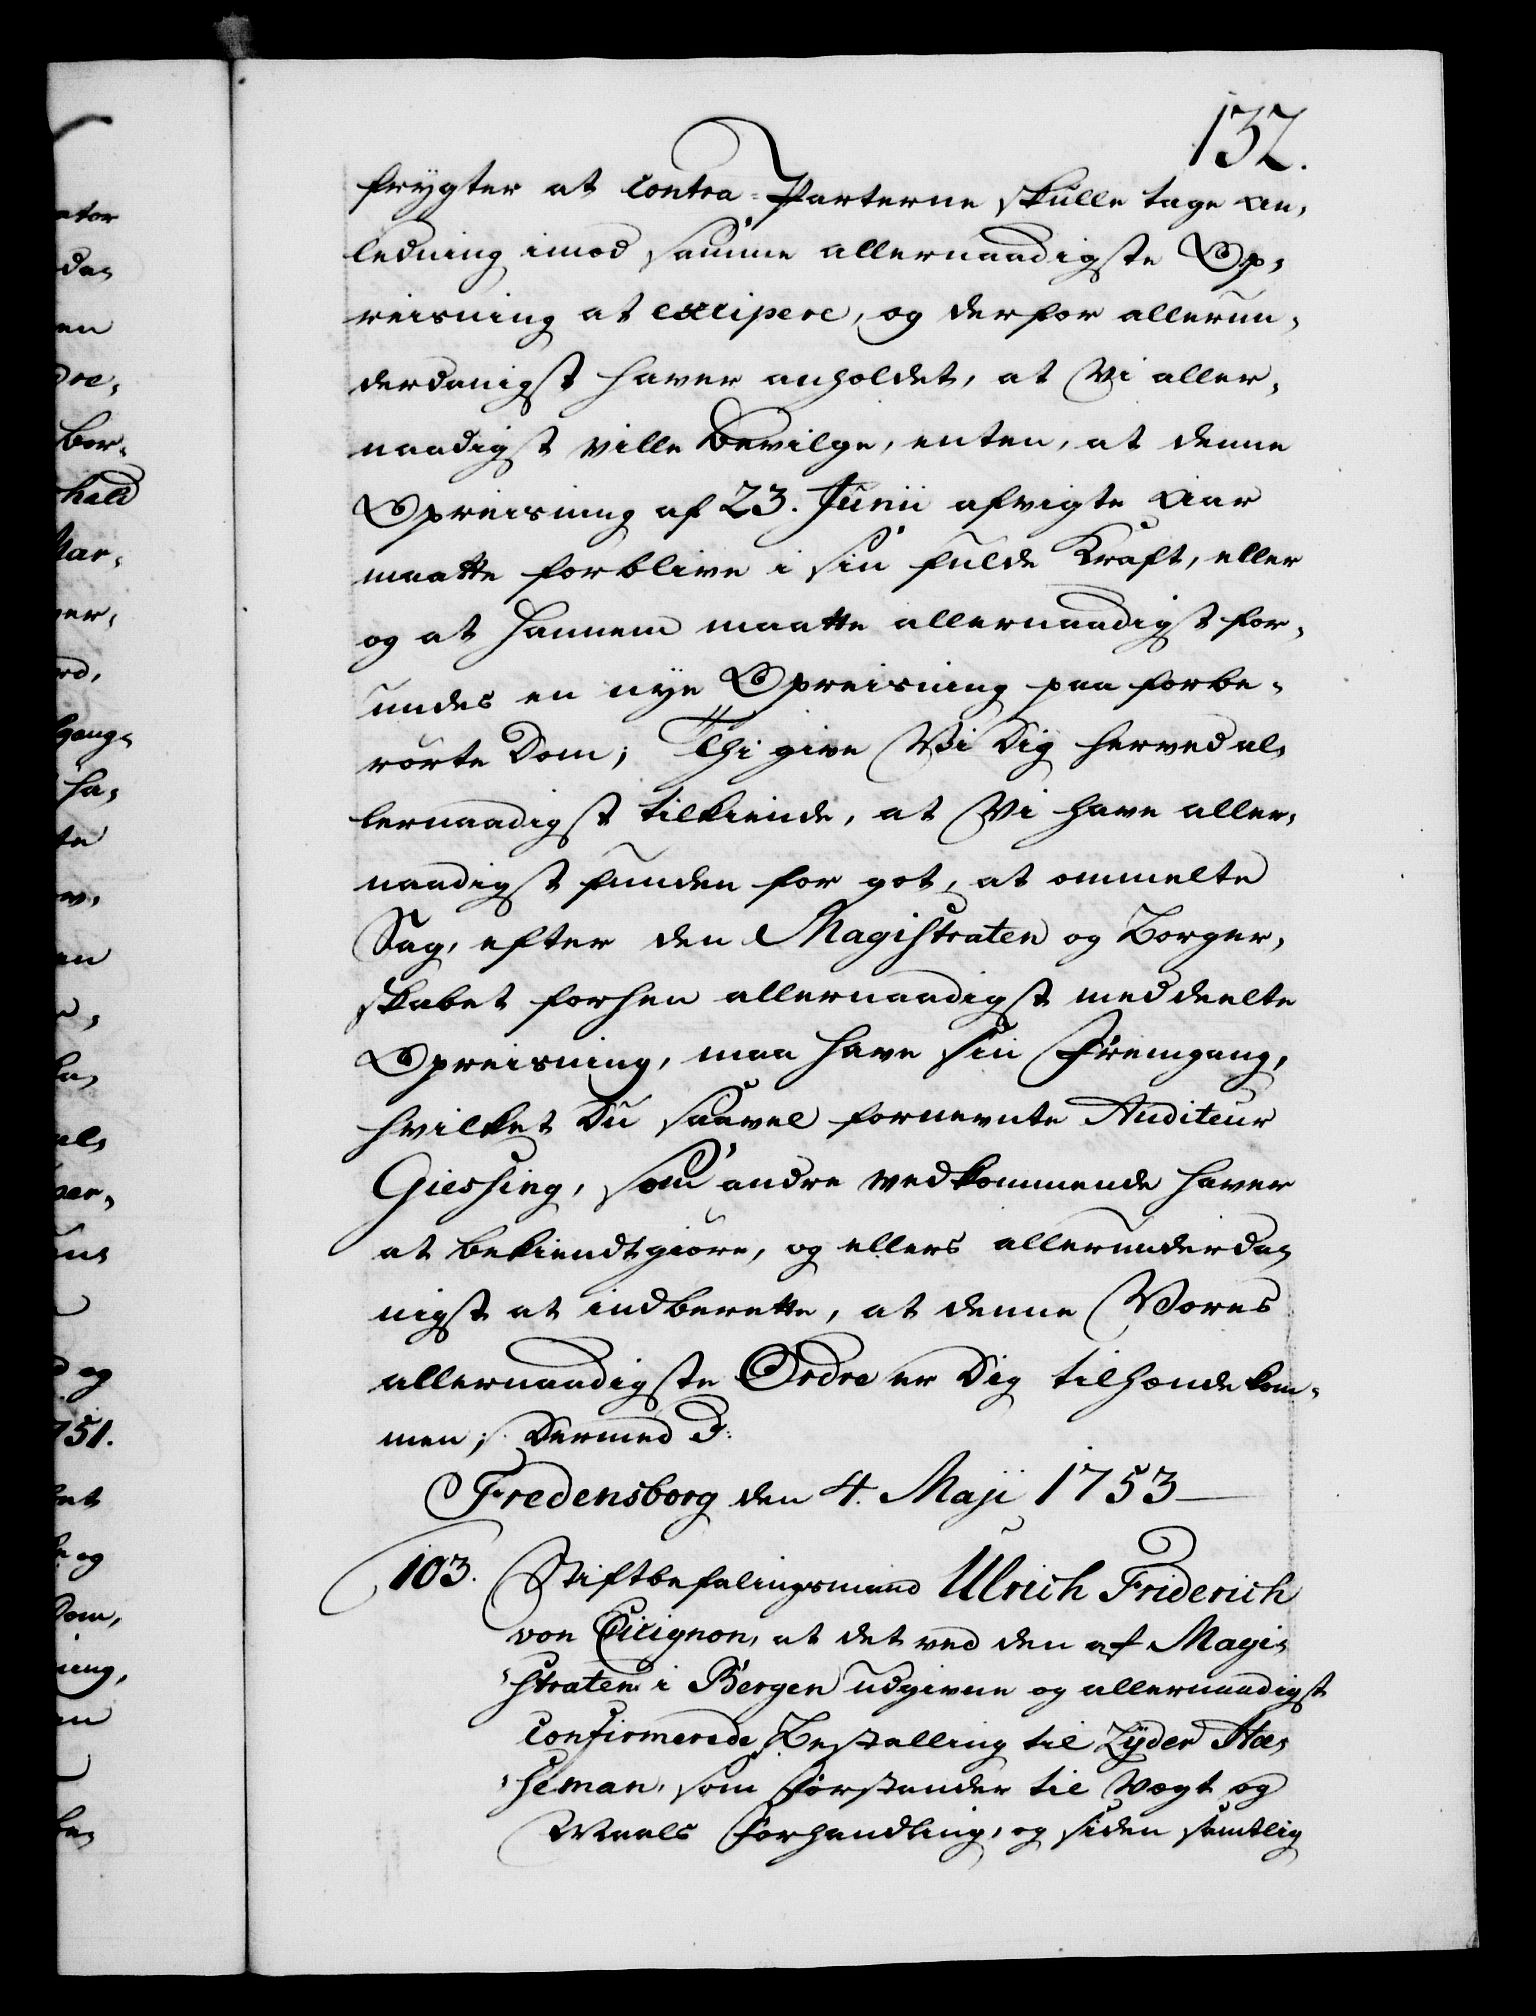 132.
frygter at Contra-Parterne skulle tage An-
ledning imod samme allernaadigste Op-
reisning at excipere, og derfor allerun-
derdanigst haver anholdet, at Vi aller-
naadigst ville bevilge, enten, at denne
Opreisning af 23. Junii afvigte Aar
maatte forblive i sin fulde Kraft, eller
og at hannem maatte allernaadigst for-
undes en nye Opreisning paa forbe-
rørte Dom; Thi give Vi Dig herved al-
lernaadigst tilkiende, at Vi have aller-
naadigst funden for got, at ommelte
Sag, efter den Magistraten og Borger-
skabet forhen allernaadigst meddeelte
Opreisning, maa have sin Fremgang,
hvilket Du saavel fornevnte Auditeur
Giessing, som andre vedkommende haver
at bekiendtgiøre, og ellers allerunderda-
nigst at indberette, at denne Vores
allernaadigste Ordre er Dig tilhænde kom-
men; Dermed
Fredensborg den 4. Maji 1753
103. Stiftbefalingsmand Ulrich Friderich
von Cicignon, at det ved den af Magi-
straten i Bergen udgivne og allernaadigst
confirmerede Bestalling til Lyder Hae-
seman, som Forstander til Vægt og
Maals Forhandling, og siden samtlig
ator
da-
en
dre-
bor-
hald
Mar-
ver-
gang-
ha-
te
en
al-
ber-
d og
751.
og
Dom,
ning,